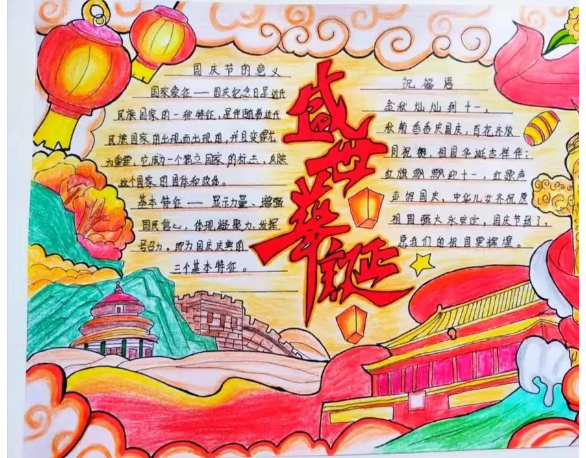 国庆节的意义
国家象征——国庆纪念日是近代
民族国家的一种特征，是伴随着近代
民族国家的出现而出现的，并且变得尤
为重要。它成为一个独立国家的标志，反映
这个国家的国体和政体。
基本特征——显示力量、增强
国民信心，体现凝聚力，发挥
号召力，即为国庆庆典的
三个基本特征。
盛世華誕
祝福语
金秋灿灿到十一，
秋菊香香庆国庆，百花齐放
同祝愿，祖国华诞吉祥伴；
红旗飘飘迎十一，红歌声
声颂国庆，中华儿女齐祝愿
祖国强大永安定，国庆节到了，
愿我们的祖国更辉煌。